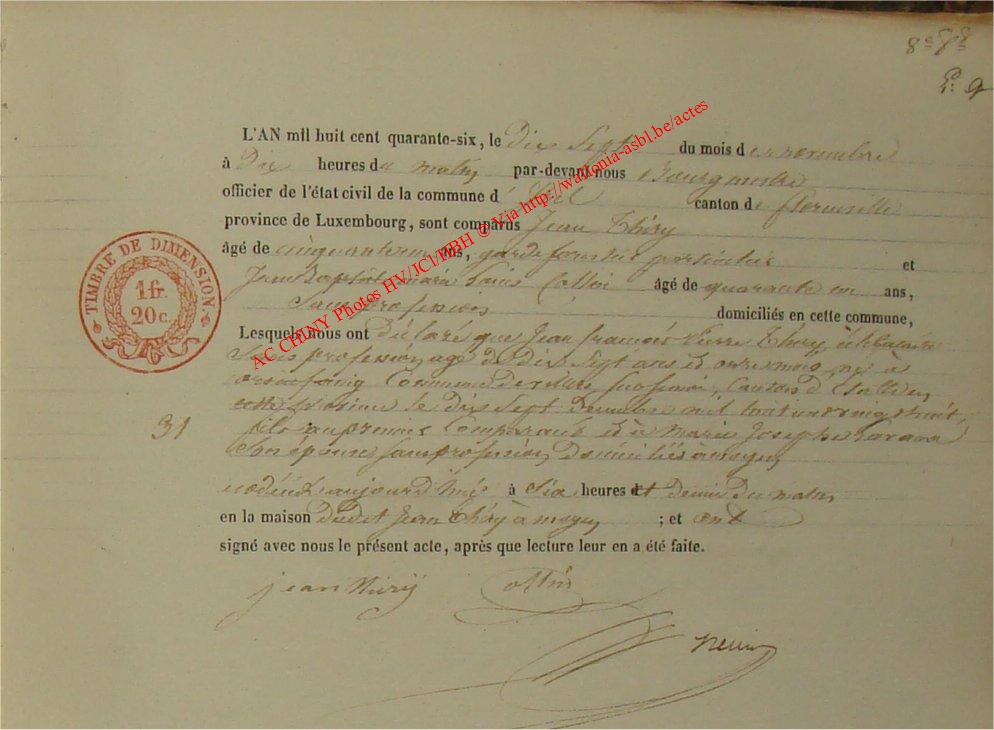 8e
P: 9
L'AN mil huit cent quarante-six, le Dix Sept du mois de novembre
à Dix heures du matin par-devant nous Bourgmestre
officier de l'état civil de la commune d' Izel canton de florenville
province de Luxembourg, sont comparus Jean Thiry
âgé de cinquante ans, garde forestier particulier et
Jean Baptiste marie Louis Collin âgé de quarante un ans,
Sans profession domiciliés en cette commune,
Lesquels nous ont Déclaré que Jean françois Pierre Thiry, célibataire
Sans profession, agé de dix Sept ans et onze mois, né à
Commune de Canton d'
cette province le dix Sept Decembre mil huit cent vingt huit,
fils au premier Comparant et à Marie Josephe
Son épouse Sans profession, Domiciliés à moyen
est décédé aujourd'hui à Six heures et demie du matin
en la maison dudit Jean Thiry à moyen ; et ont
signé avec nous le présent acte, après que lecture leur en a été faite.
31
jean thirÿ Collin
TIMBRE DE DIMENSION.
1 fr.
20 c.
AC CHINY Photos HV/JCl/PBH © Via http://wallonia-asbl.be/actes